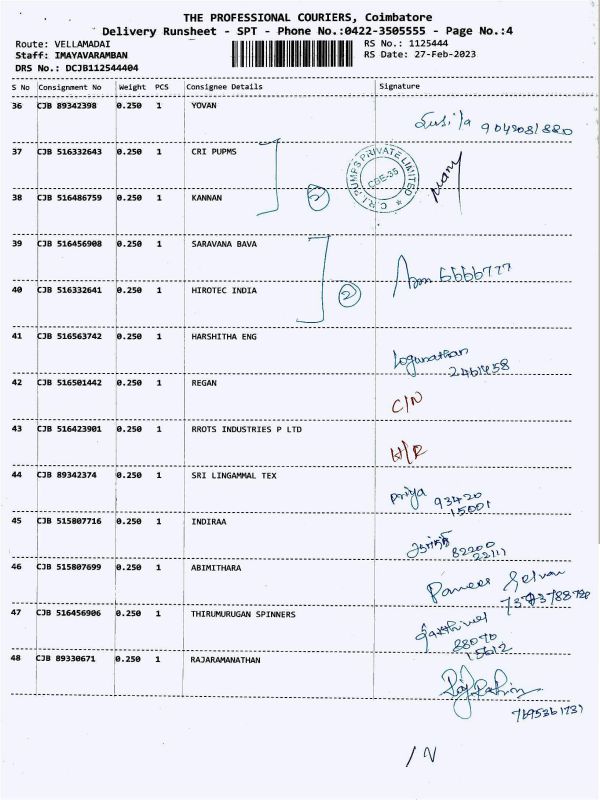 THE PROFESSIONAL COURIERS, Coimbatore
Delivery Runsheet - SPT - Phone No.:0422-3505555 - Page No.:4
Route: VELLAMADAI
RS No.: 1125444
Staff: IMAYAVARAMBAN
RS Date: 27-Feb-2023
DRS No.: DCJB112544404
S No Consignment No Weight PCS Consignee Details Signature
36 CJB 89342398 0.250 1 YOVAN
37 CJB 516332643 0.250 1 CRI PUPMS
C.R.I. PUMPS PRIVATE LIMITED
CBE-35
38 CJB 516486759 0.250 1 KANNAN
2
39 CJB 516456908 0.250 1 SARAVANA BAVA
40 CJB 516332641 0.250 1 HIROTEC INDIA
2
41 CJB 516563742 0.250 1 HARSHITHA ENG
Logunathan
42 CJB 516501442 0.250 1 REGAN
C/N
43 CJB 516423901 0.250 1 RROTS INDUSTRIES P LTD
H/R
44 CJB 89342374 0.250 1 SRI LINGAMMAL TEX
priya 93420
15001
45 CJB 515807716 0.250 1 INDIRAA
82200
22111
46 CJB 515807699 0.250 1 ABIMITHARA
47 CJB 516456906 0.250 1 THIRUMURUGAN SPINNERS
88070
15612
48 CJB 89330671 0.250 1 RAJARAMANATHAN